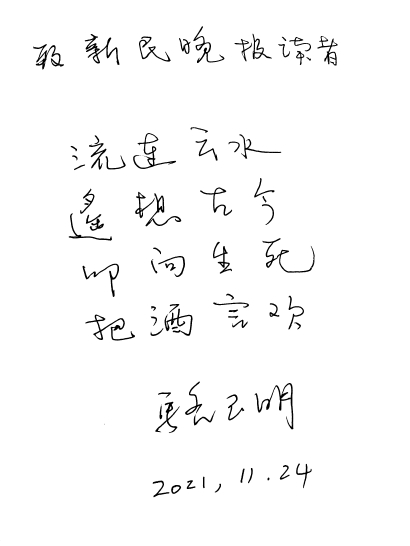 致新民晚报读者
流连云水
遥想古今
叩问生死
把酒言欢
骆玉明
2021, 11.24